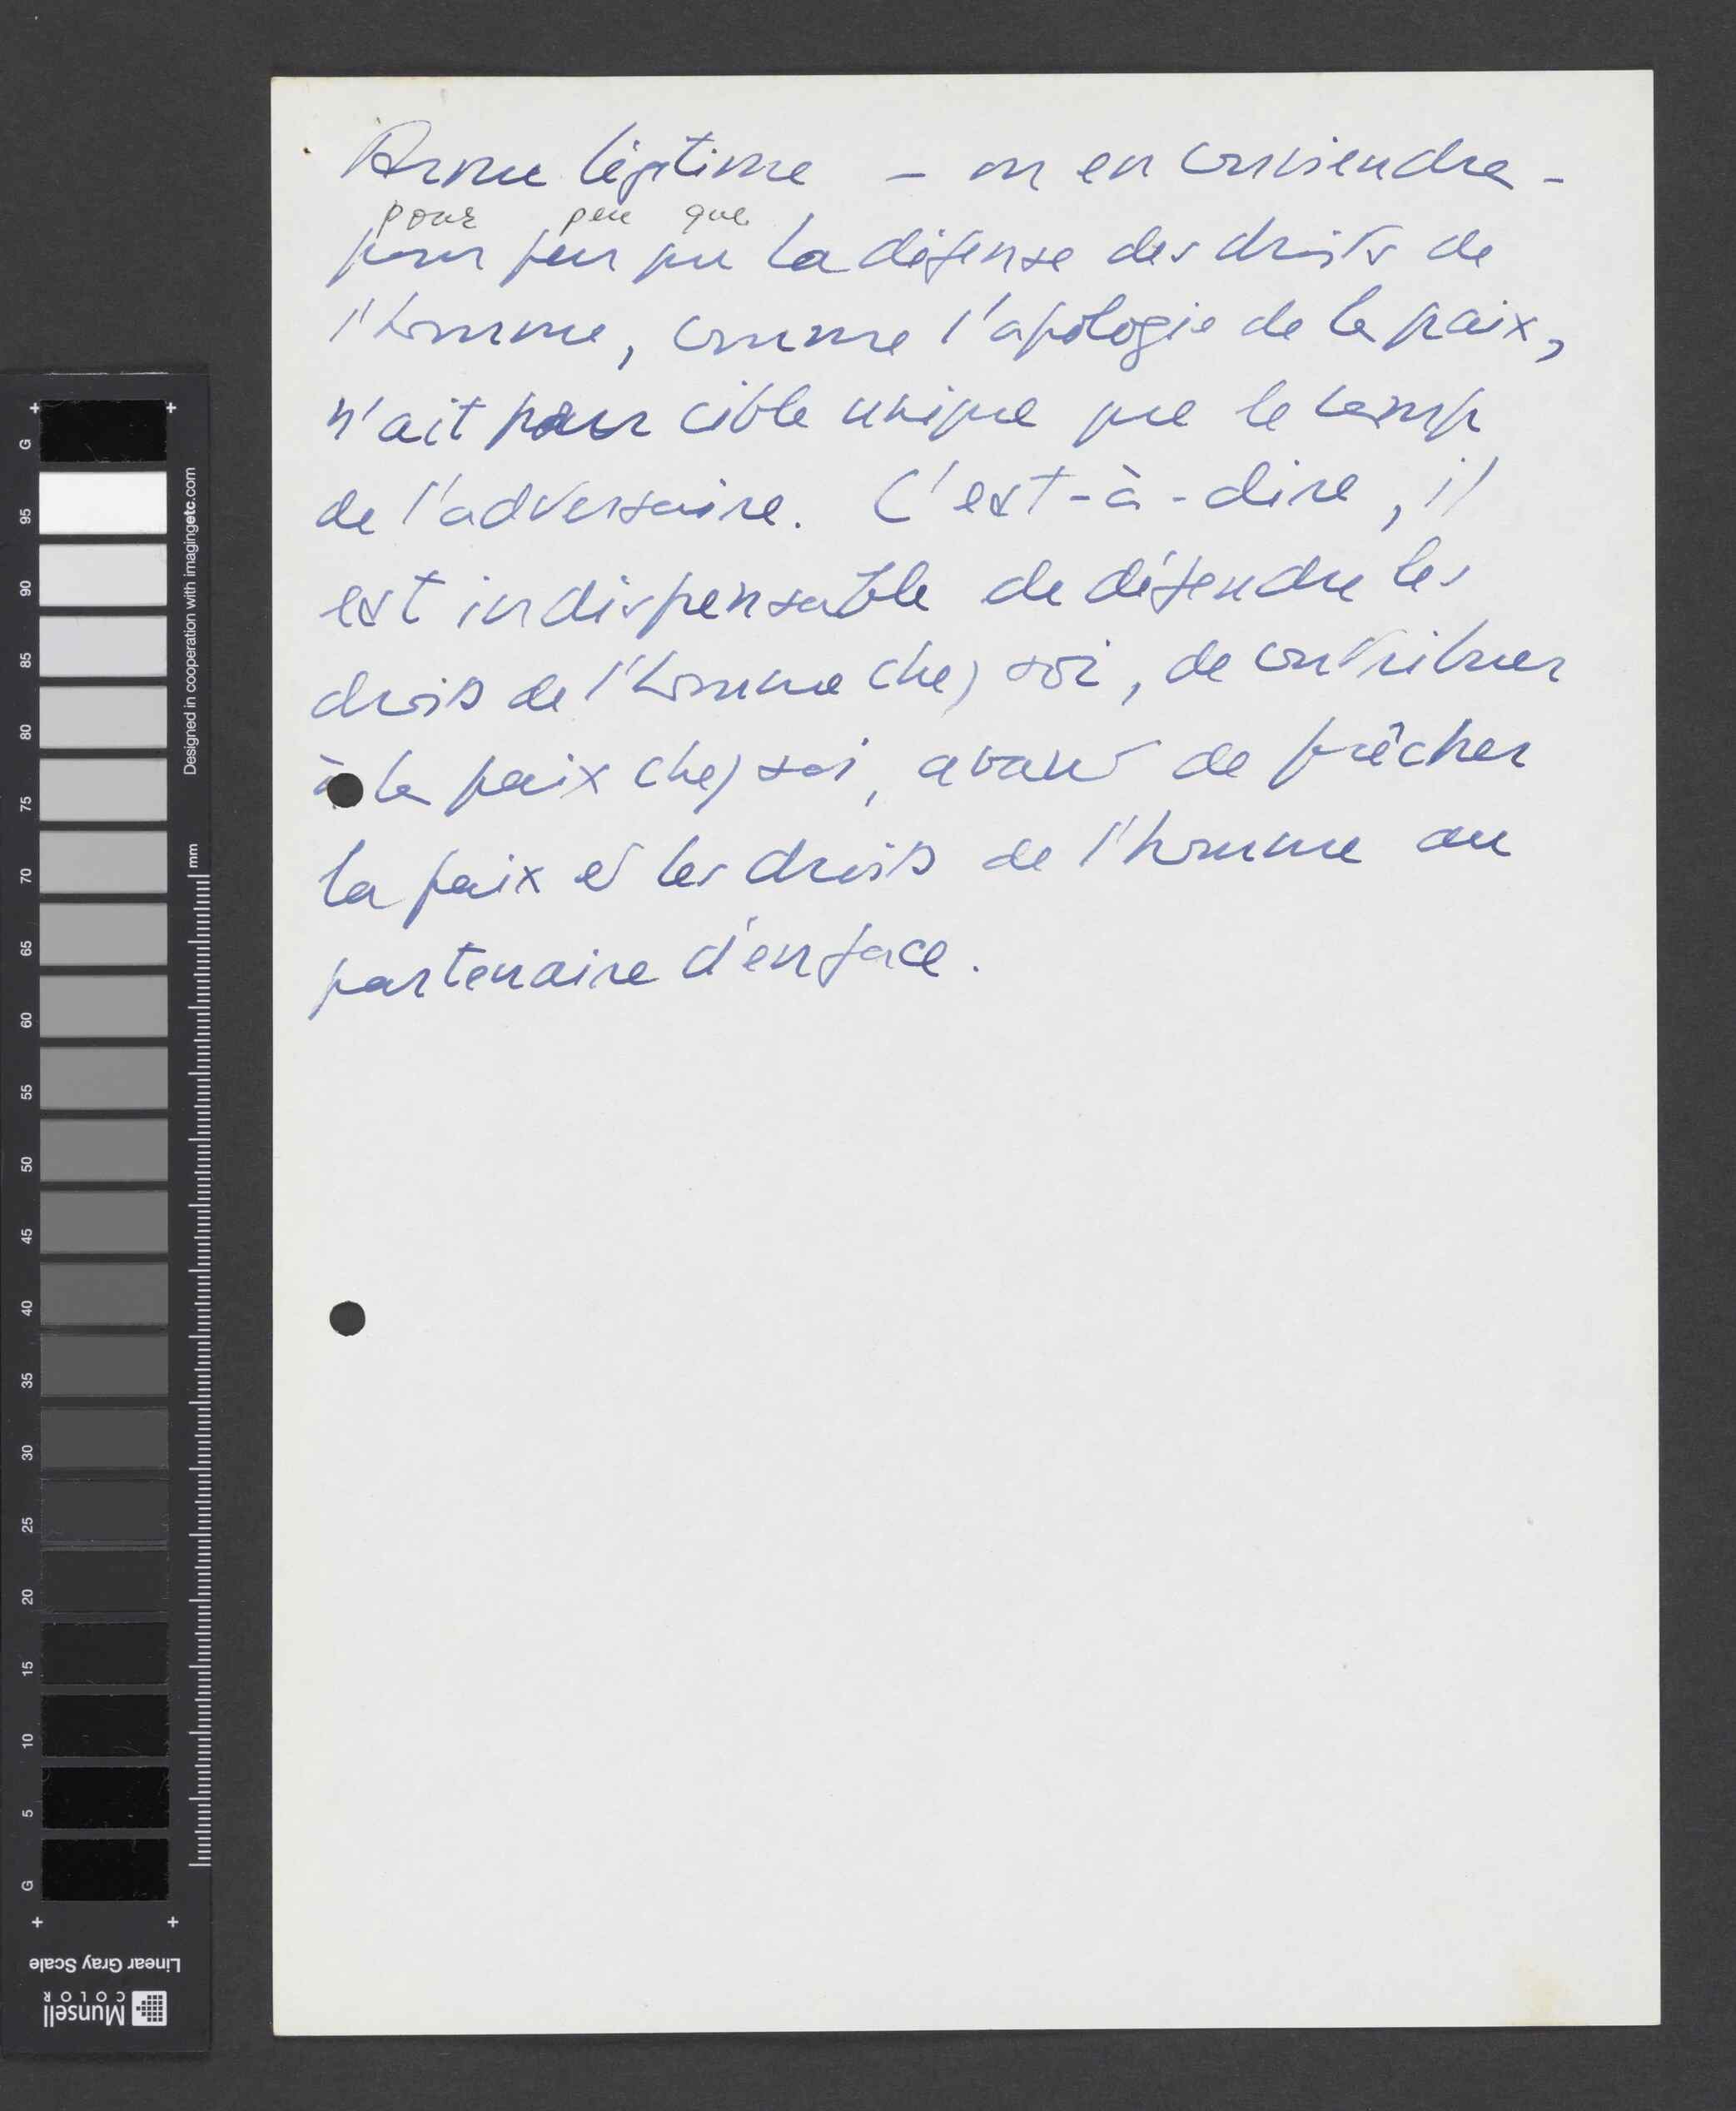 Arme légitime – on en conviendra –
pour peu que
pour peu que la défense des droits de
l'homme, comme l'apologie de la paix,
n'ait pour cible unique que le camp
de l'adversaire. C'est-à-dire, il
est indispensable de défendre les
droits de l'homme chez soi, de contribuer
à la paix chez soi, avant de prêcher
la paix et les droits de l'homme au
partenaire d'en face.
G
95
90
85
80
75
70
65
60
55
50
45
40
35
30
25
20
15
10
5
G
Designed in cooperation with imagingetc.com
mm
Linear Gray Scale
Munsell
COLOR